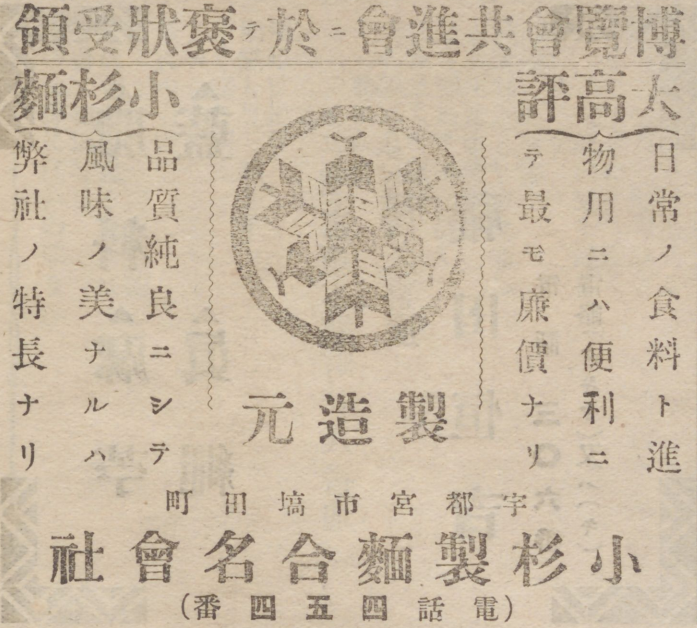 博覽會共進會ニ於テ褒狀受領
大高評
日常ノ食料ト進
物用ニハ便利ニ
テ最モ廉價ナリ
小杉麵
品質純良ニシテ
風味ノ美ナルハ
弊社ノ特長ナリ
製造元
宇都宮市塙田町
小杉製麵合名會社
(電話四五四番)